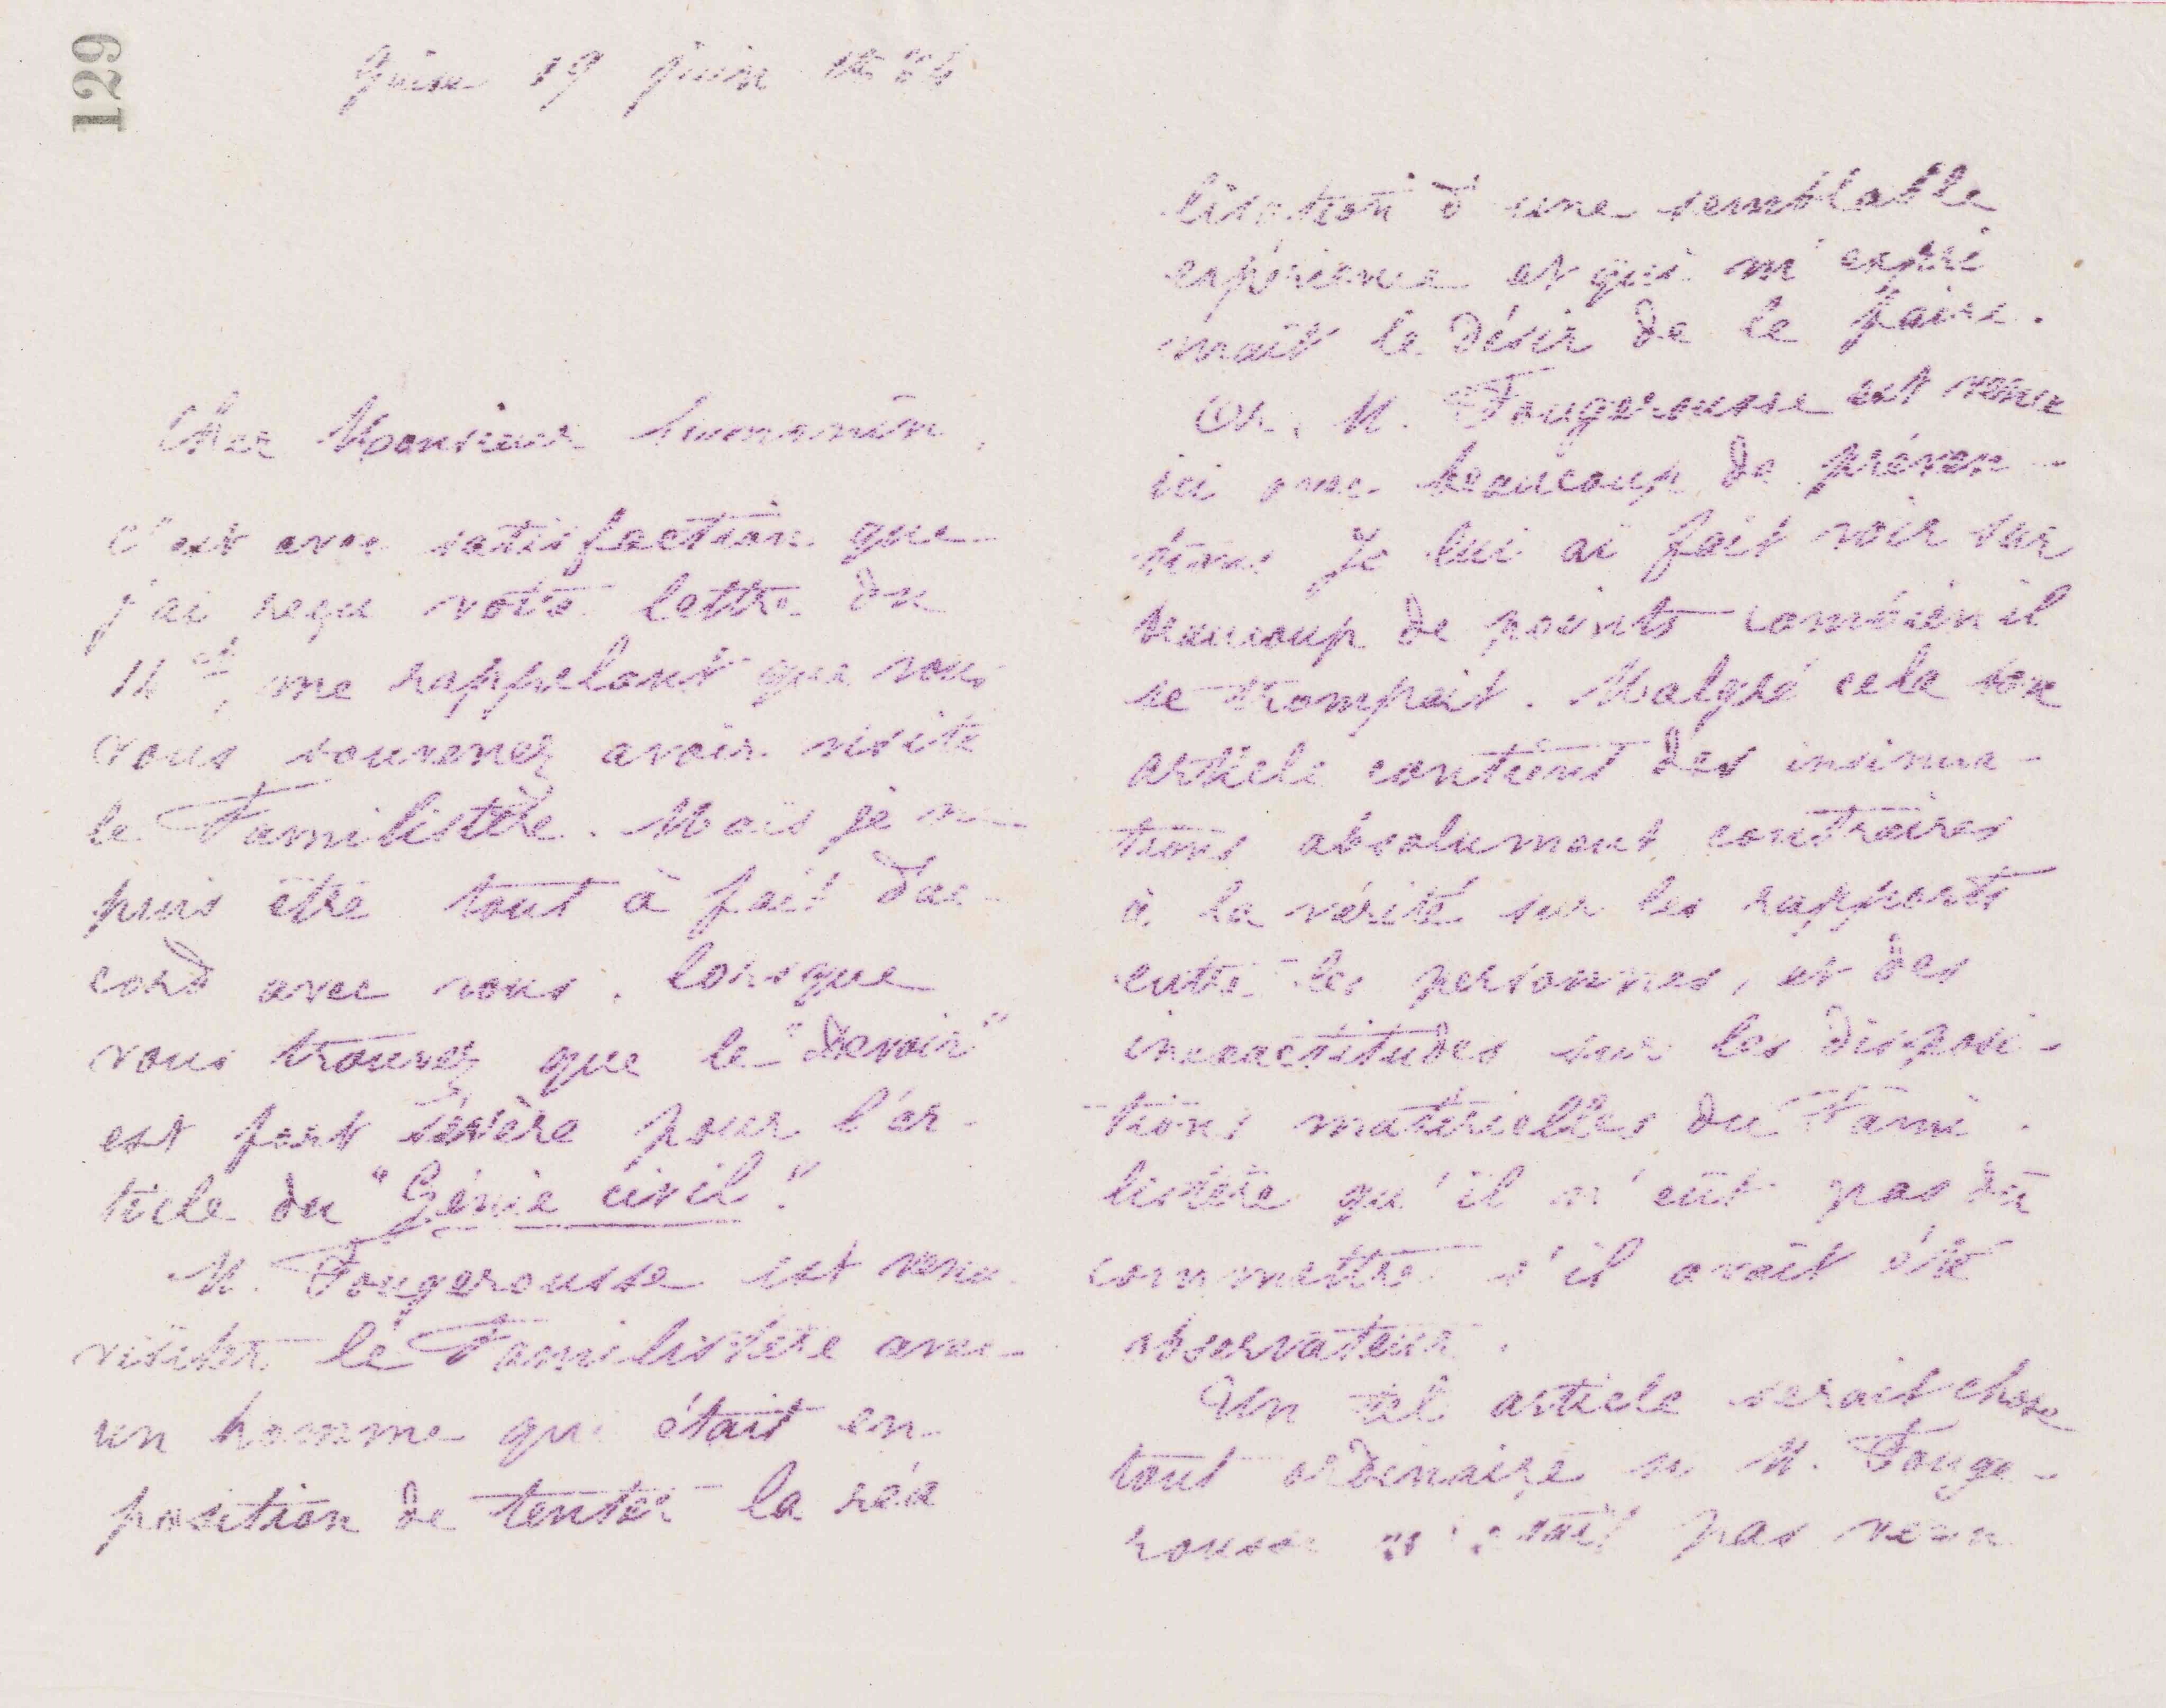 129
Guise 19 juin 1884
Cher Monsieur
C'est avec satisfaction que
j'ai reçu votre lettre du
14 ct, me rappelant que vous
vous souvenez avoir visité
le Familistère. Mais je ne
puis être tout à fait d'ac-
cord avec vous, lorsque
vous trouvez que le "Devoir"
est fort sévère pour l'ar-
ticle du "Génie civil".
M. Fougerousse est venu
visiter le Familistère avec
un homme qui était en
position de tenter la réa
lisation d'une semblable
expérience et qui m'expri
mait le désir de le faire.
Or, M. Fougerousse est venu
ici avec beaucoup de préven-
tions Je lui ai fait voir sur
beaucoup de points combien il
se trompait. Malgré cela son
article contient des insinua-
tions absolument contraires
à la vérité sur les rapports
entre les personnes, et des
inexactitudes sur les disposi-
tions matérielles du Fami-
listère qu'il n'eût pas dû
commettre s'il avait été
observateur.
Un tel article serait chose
tout ordinaire si M. Fouge-
rousse n'était pas venu